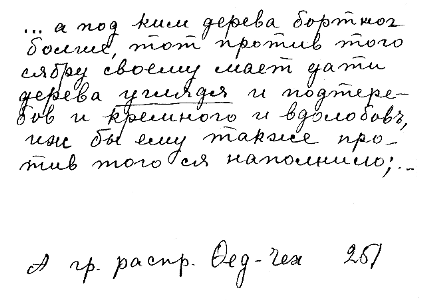 ... а под ким дерева бортног
болше, тот против того
сябру своему мает дати
дерева углядя и подтере-
бов и кремного и вдолобовъ,
иж бы ему также про-
тив того ся наполнило; ..
А гр. распр. Фед-Чех 251